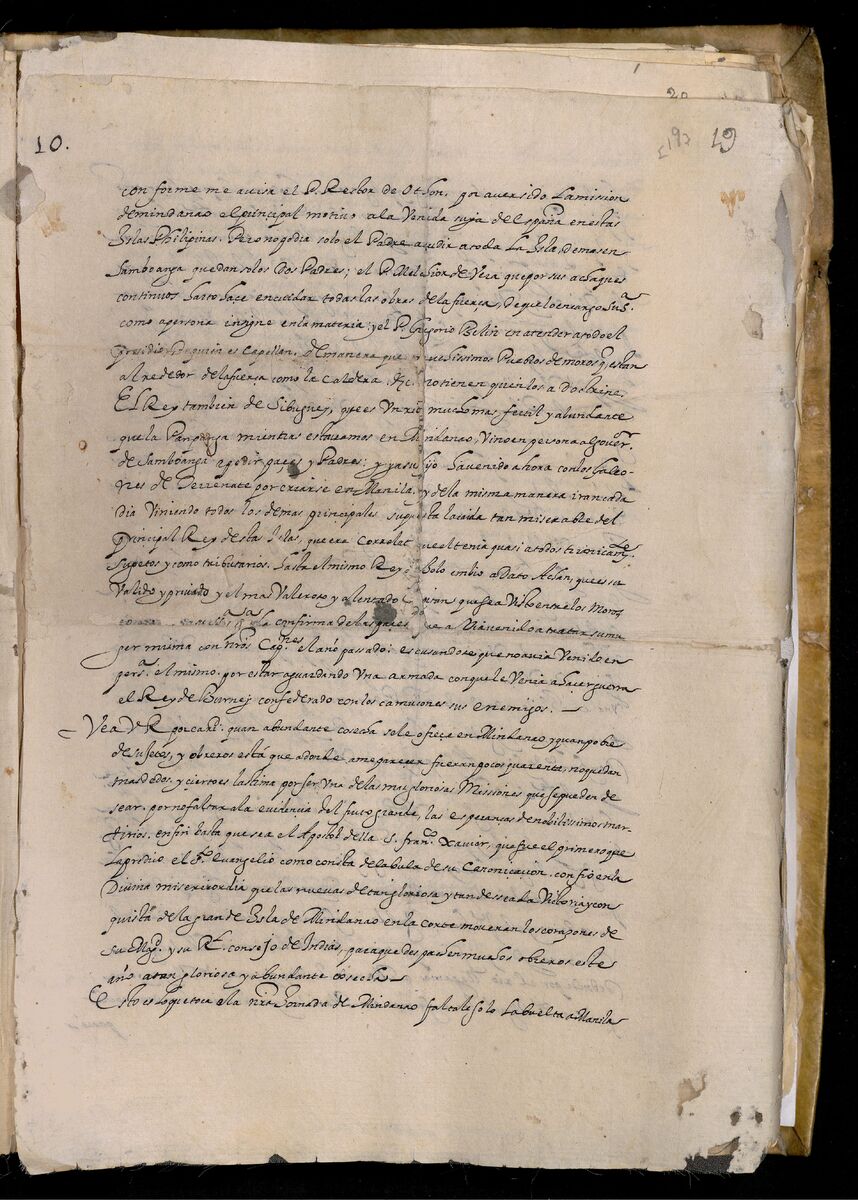 10.
20
197
19
conforme me avisa el P. Rector de Oton, por aver sido La mission
de mindanao el principal motivo a la Venida suya de españa en estas
Islas Philipinas. Pero no podia solo el Padre acudir a toda La Isla, demas en
Samboanga quedan solos Dos Padres; el P. Melchior de Vera que por sus achaques
continuos harto hace en cuidar todas las obras de la fuerça, de que lo encargo Su Sª.
como a persona insigne en la materia; y el P. Gregorio Belin en atender a todo el
presidio, de quien es Capellan. De manera que muchissimos Pueblos de moros q̃ estan
al rededor de la fuerça como la Caldera, &c. no tienen quien los a Doctrine.
El Rey tambien de Sibuguei, que es Un rio mucho mas fertil y abundante
que la Panpanga mientras estavamos en Mindanao, Vino en persona al Gover.ʳ
de Samboanga a pedir paces y Padres; y ya su hijo ha venido ahora con los Galeo-
nes de Terrenate por criarse en Manila, y de la misma manera iran cada
dia Viniendo todos los demas principales supuesta la caida tan miserable del
principal Rey de estas Islas, que era Corralat que el tenia quasi a todos tiranicamᵗᵉ.
sujetos y como tributarios. hasta el mismo Rey de holo embio a Dato Achen, que es su
Valido y privado y el mas Valeroso y alentado que se a Visto entre los Moros
confirma de las paces que a Mi avenido a tratar su mu-
ger misma con nr̃os Cap.ⁿᵉˢ el año passado; escusandose que no avia Venido en
persª. el mismo, por estar aguardando Una armada con que le Venia a hacer guerra
el Rey de Burney confederado con los camucones sus enemigos.
Vea V R por carᵈ. quan abundante cosecha se le ofrece en Mindanao y quan pobre
de sujetos, y obreros está que adonde a menester fueran pocos quarenta, no quedan
mas de dos, y cierto es lastima por ser Una de las mas gloriosas Missiones que se pueden de-
sear. por no faltar a la evidencia del fruto grande, las esperansas de nobilissimos mar-
tirios. en fin basta que sea el Apostol della S. franᶜᵒ. Xavier, que fue el primero que
la predico el Sᵗᵒ. Evangelio como consta de la bula de su Canonicacion. confio en la
Divina misericordia que las nuevas de tan gloriosa y tan desseada Victoria y con-
quista de la grande Isla de Mindanao en la corte moveran los corazones de
su Magᵈ. y su Rˡ. consejo de Indias, para que despachen muchos obreros este
año a tan gloriosa y abundante cosecha
Esto es lo que toca a la nr̃a Jornada de Mindanao faltale solo La buelta a Manila